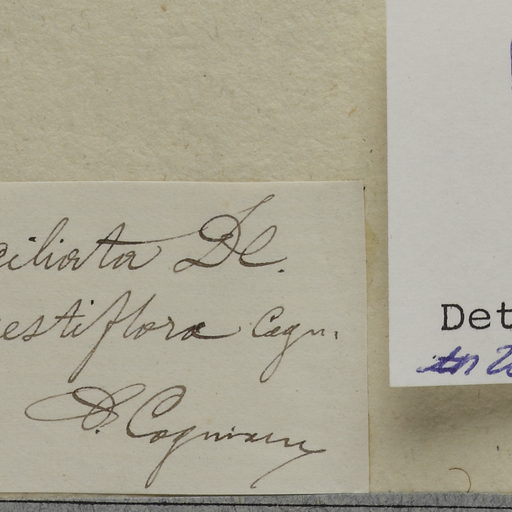 ciliata DC.
estiflora Cogn.
A. Cogniaux
Det